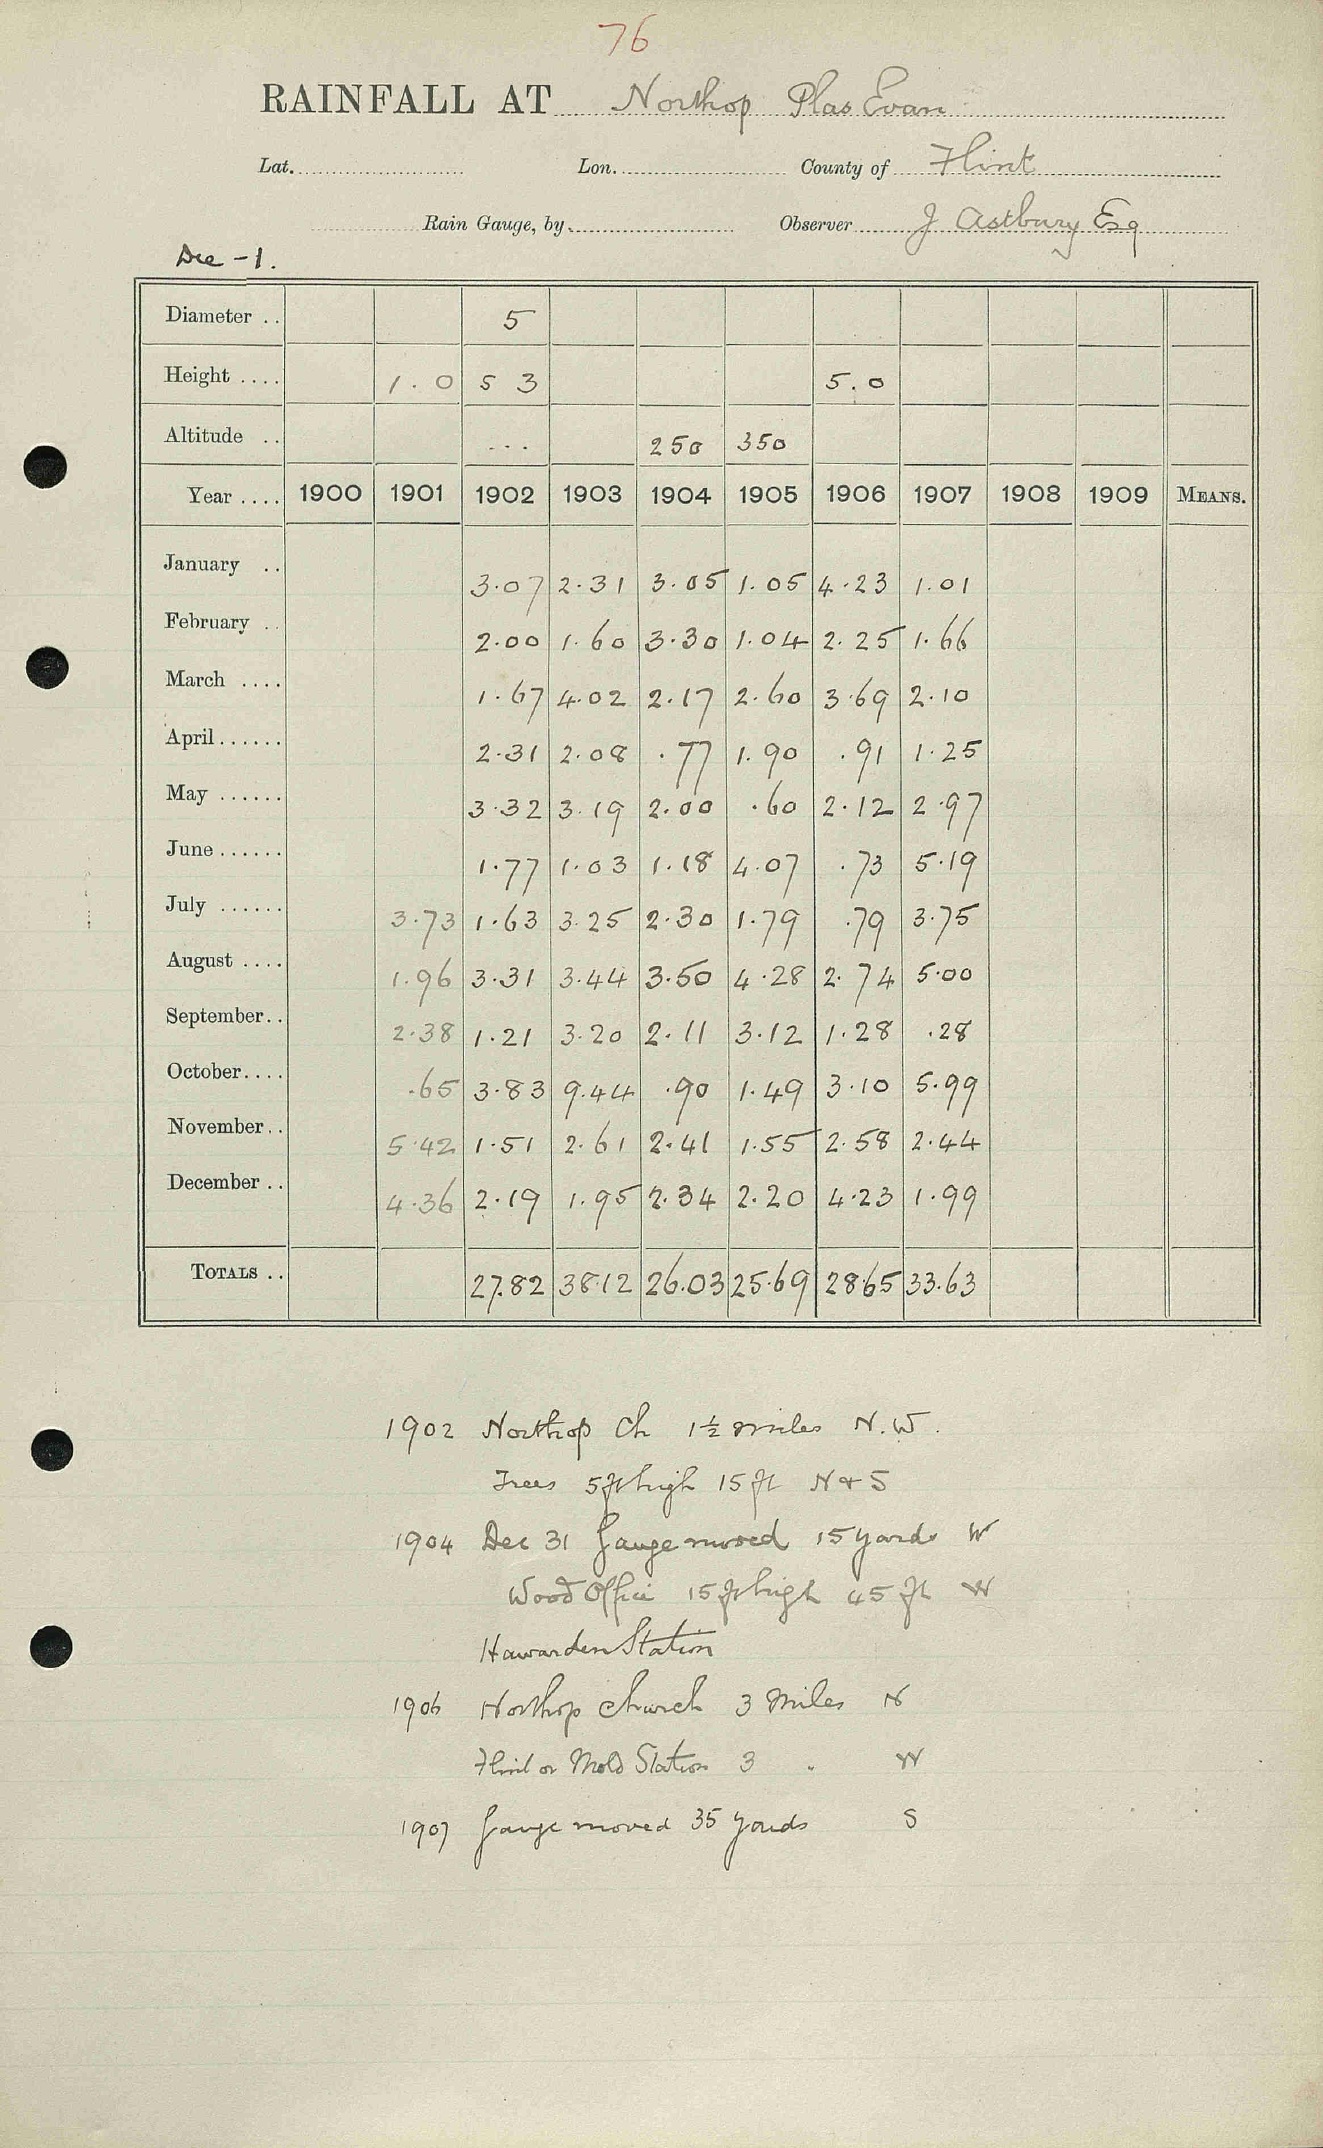 76
RAINFALL AT Northop Plas Evan
Lat. Lon. County of Flint
Rain Gauge, by Observer J Astbury Esq
Dec -1.
Diameter .. 5
Height .... 1.0 5 3 5.0
Altitude .. ... 250 350
Year .... 1900 1901 1902 1903 1904 1905 1906 1907 1908 1909 MEANS.
January .. 3.07 2.31 3.05 1.05 4.23 1.01
February .. 2.00 1.60 3.30 1.04 2.25 1.66
March .... 1.67 4.02 2.17 2.60 3.69 2.10
April ...... 2.31 2.08 .77 1.90 .91 1.25
May ...... 3.32 3.19 2.00 .60 2.12 2.97
June ...... 1.77 1.03 1.18 4.07 .73 5.19
July ...... 3.73 1.63 3.25 2.30 1.79 .79 3.75
August .... 1.96 3.31 3.44 3.50 4.28 2.74 5.00
September .. 2.38 1.21 3.20 2.11 3.12 1.28 .28
October .... .65 3.83 9.44 .90 1.49 3.10 5.99
November .. 5.42 1.51 2.61 2.41 1.55 2.58 2.44
December .. 4.36 2.19 1.95 2.34 2.20 4.23 1.99
TOTALS .. 27.82 38.12 26.03 25.69 28.65 33.63
1902 Northop Ch 1½ miles N.W.
Trees 5ft high 15 ft N & S
1904 Dec 31 Gauge moved 15 yards W
Wood Office 15 ft high 45 ft W
Hawarden Station
1906 Northop Church 3 Miles N
Flint or Mold Station 3 " W
1907 Gauge moved 35 yards S